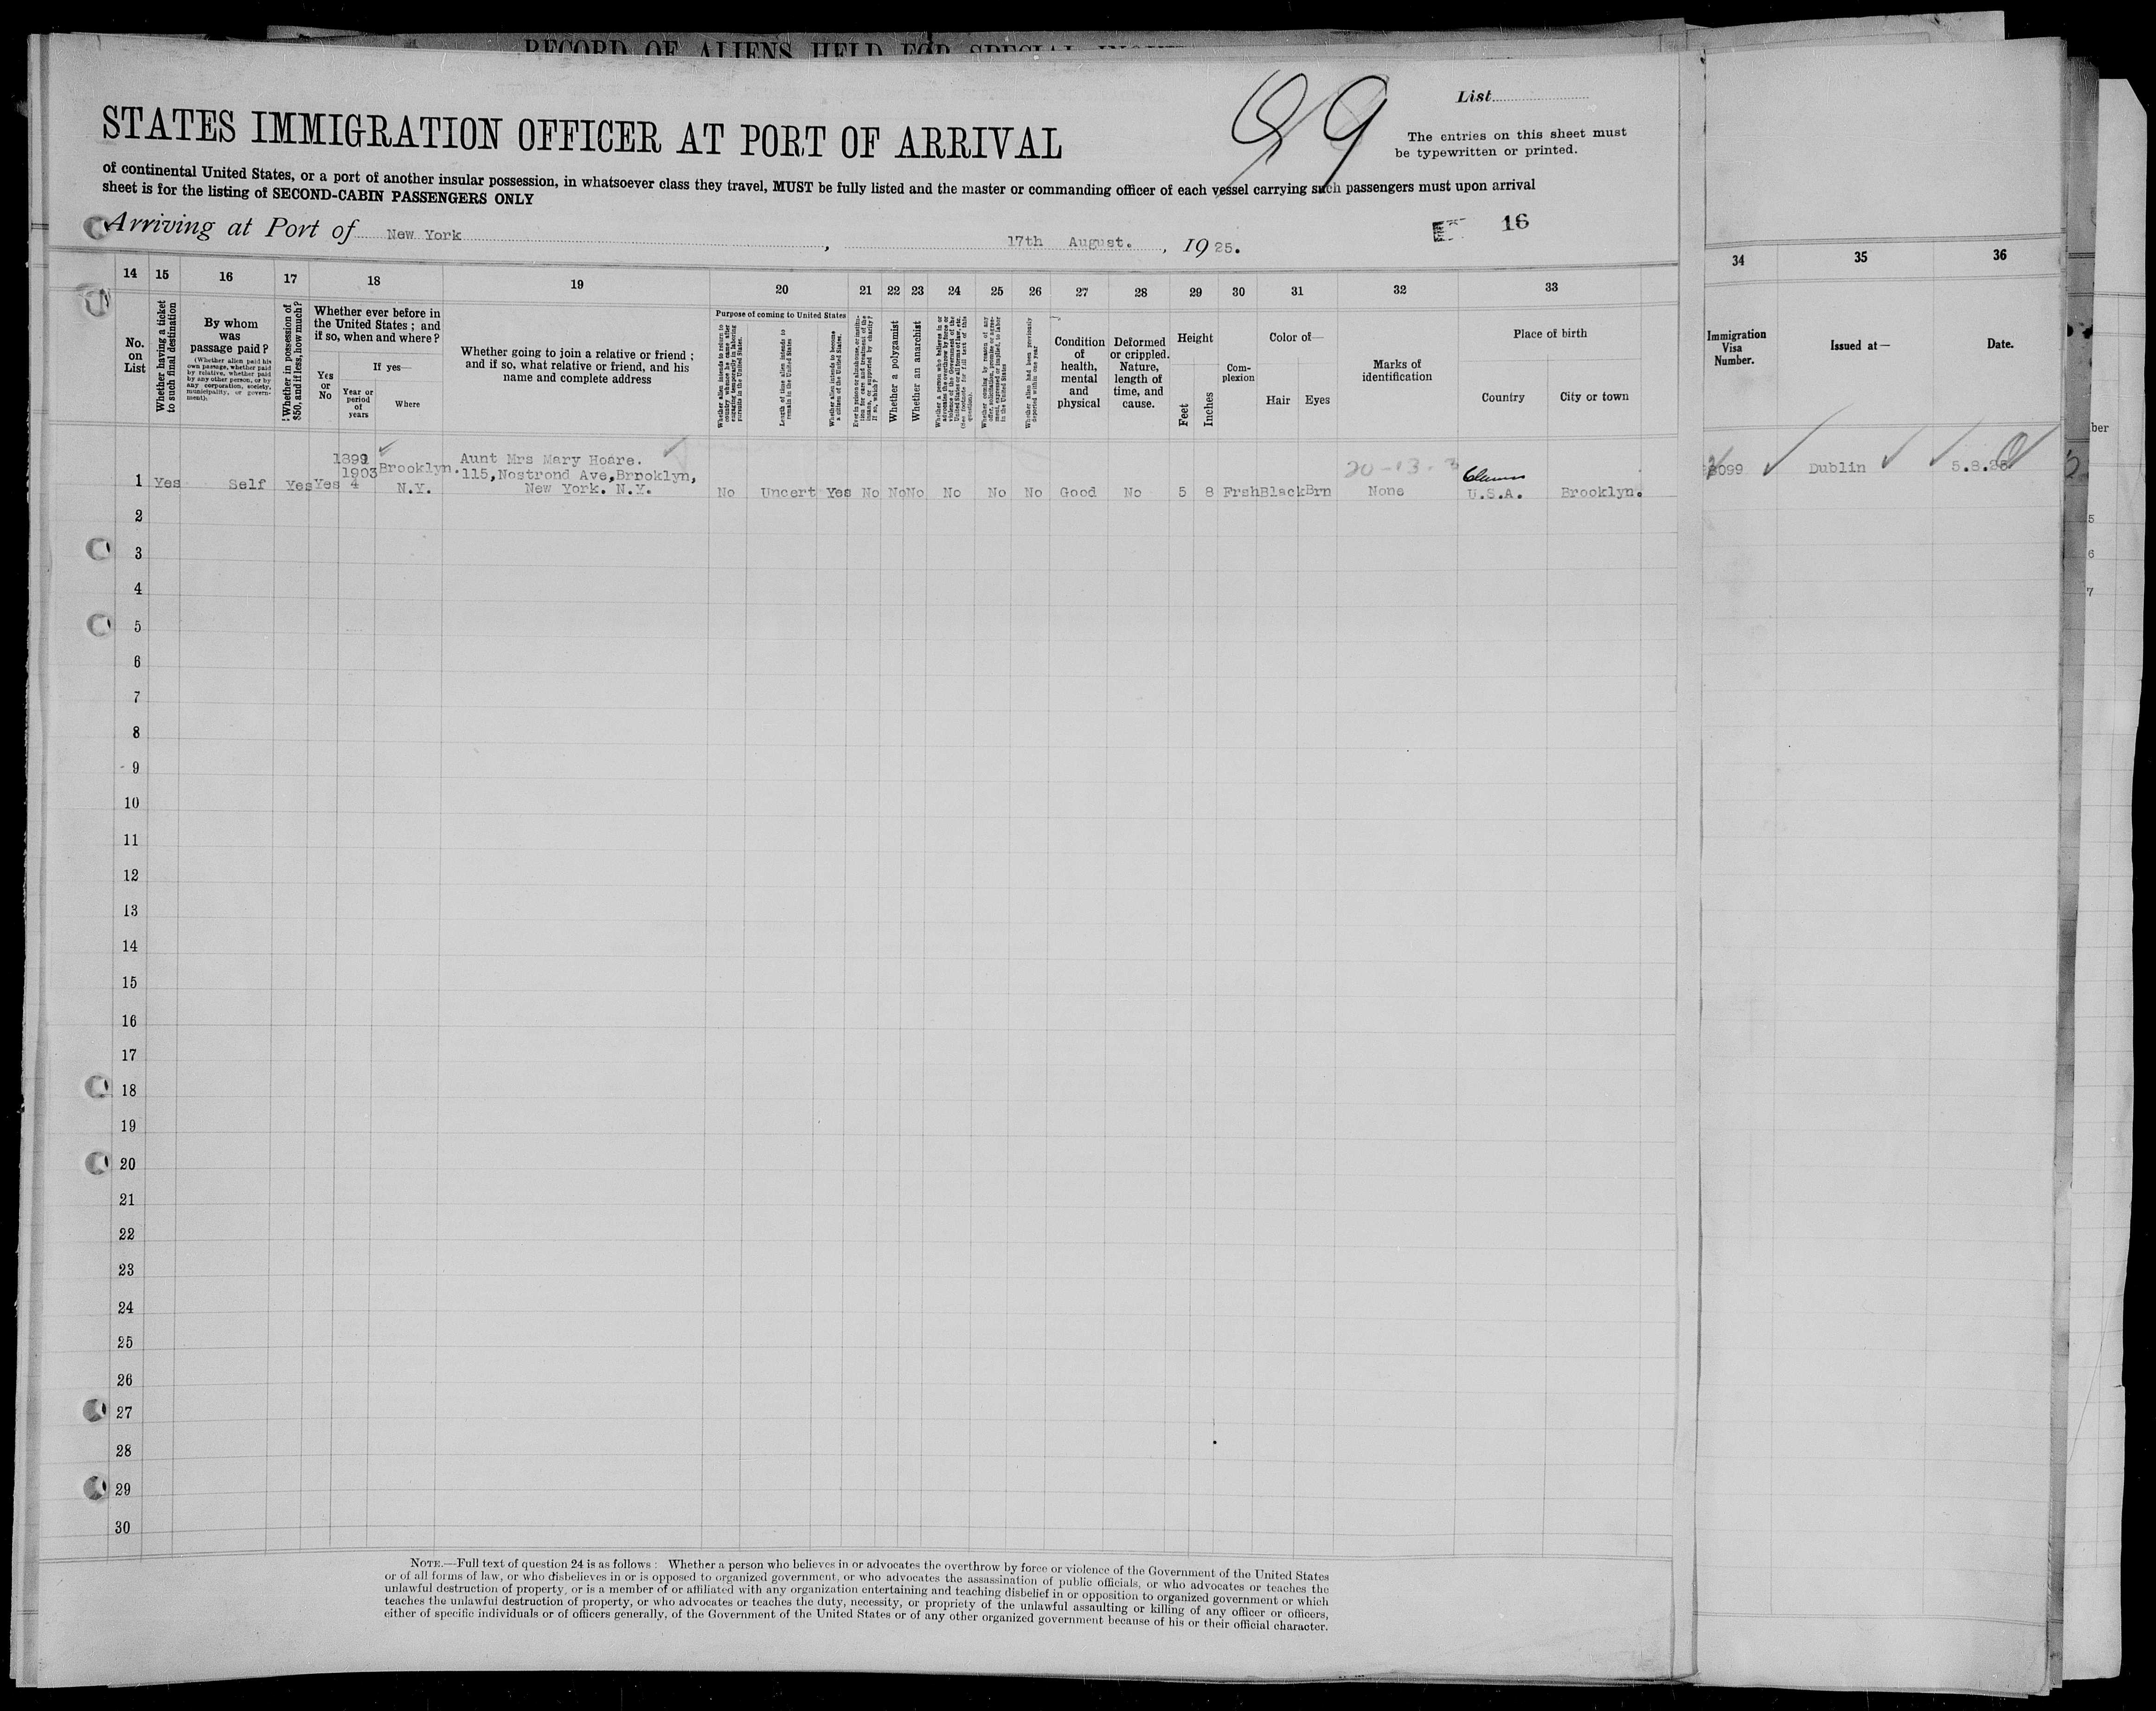 RECORD OF ALIENS HELD FOR SPECIAL
List
STATES IMMIGRATION OFFICER AT PORT OF ARRIVAL
The entries on this sheet must
be typewritten or printed.
of continental United States, or a port of another insular possession, in whatsoever class they travel, MUST be fully listed and the master or commanding officer of each vessel carrying such passengers must upon arrival
sheet is for the listing of SECOND-CABIN PASSENGERS ONLY
Arriving at Port of New York, 17th August., 1925.
16
14 15 16 17 18 19 20 21 22 23 24 25 26 27 28 29 30 31 32 33 34 35 36
No.
on
List
Whether having a ticket
to such final destination
By whom
was
passage paid?
(Whether alien paid his
own passage, whether paid
by relative, whether paid
by any other person, or by
any corporation, society,
municipality, or govern-
ment).
Whether in possession of
$50, and if less, how much?
Whether ever before in
the United States; and
if so, when and where?
Yes
or
No
If yes—
Year or
period
of
years
Where
Whether going to join a relative or friend;
and if so, what relative or friend, and his
name and complete address
Purpose of coming to United States
Whether alien intends to return to
country whence he came after
engaging temporarily in laboring
pursuits in the United States.
Length of time alien intends to
remain in the United States
Whether alien intends to become
a citizen of the United States.
Ever in prison or almshouse, or institu-
tion for care and treatment of the
insane, or supported by charity?
If so, which?
Whether a polygamist
Whether an anarchist
Whether a person who believes in or
advocates the overthrow by force or
violence of the Government of the
United States or all forms of law, etc.
(See footnote for full text of this
question).
Whether coming by reason of any
offer, solicitation, promise or agree-
ment, expressed or implied, to labor
in the United States
Whether alien had been previously
deported within one year
Condition
of
health,
mental
and
physical
Deformed
or crippled.
Nature,
length of
time, and
cause.
Height
Feet
Inches
Com-
plexion
Color of—
Hair Eyes
Marks of
identification
Place of birth
Country City or town
Immigration
Visa
Number.
Issued at—
Date.
1899 Aunt Mrs Mary Hoare.
1903 Brooklyn. 115,Nostrond Ave,Brooklyn,
1 Yes Self Yes Yes 4 N.Y. New York. N.Y. No Uncert Yes No No No No No No Good No 5 8 Frsh Black Brn None U.S.A. Brooklyn. Dublin
2
3
4
5
6
7
8
9
10
11
12
13
14
15
16
17
18
19
20
21
22
23
24
25
26
27
28
29
30
NOTE.—Full text of question 24 is as follows: Whether a person who believes in or advocates the overthrow by force or violence of the Government of the United States
or of all forms of law, or who disbelieves in or is opposed to organized government, or who advocates the assassination of public officials, or who advocates or teaches the
unlawful destruction of property, or is a member of or affiliated with any organization entertaining and teaching disbelief in or opposition to organized government or which
teaches the unlawful destruction of property, or who advocates or teaches the duty, necessity, or propriety of the unlawful assaulting or killing of any officer or officers,
either of specific individuals or of officers generally, of the Government of the United States or of any other organized government because of his or their official character.
ber
5
6
7